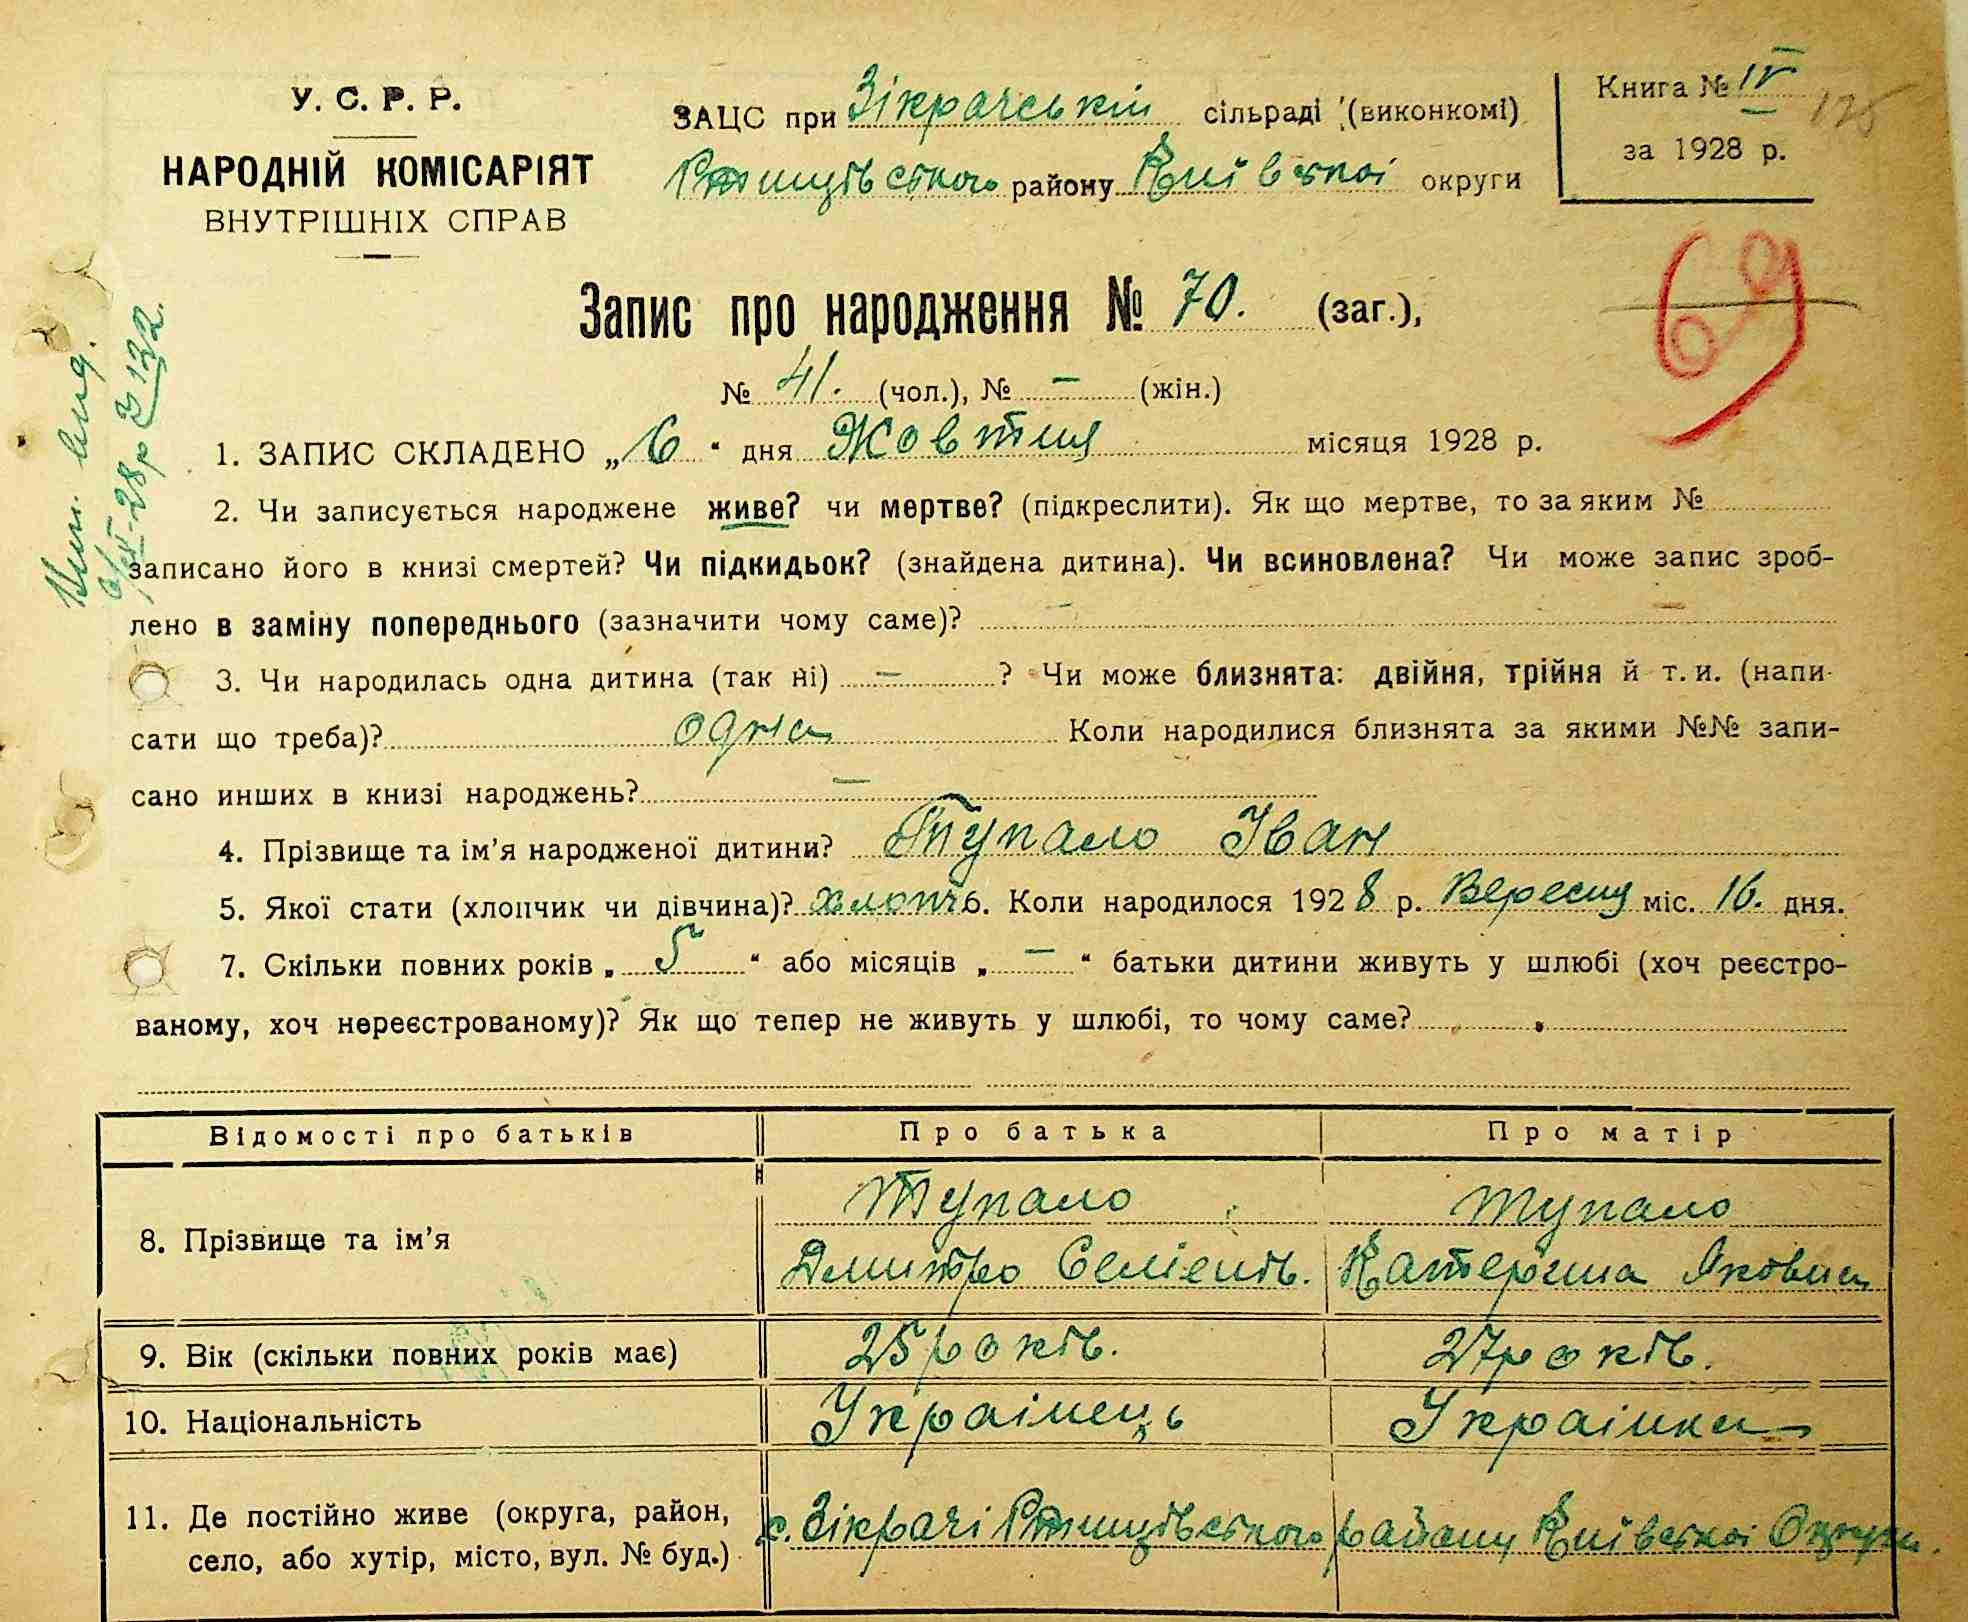 У. С. Р. Р.
НАРОДНІЙ КОМІСАРІЯТ
ВНУТРІШНІХ СПРАВ
ЗАЦС при Зікрачській сільраді (виконкомі)
Ржищівського району Київської округи
Книга № IV
за 1928 р.
69
Запис про народження № 70. (заг.),
№ 41. (чол.), № — (жін.)
1. ЗАПИС СКЛАДЕНО „6“ дня Жовтня місяця 1928 р.
2. Чи записується народжене живе? чи мертве? (підкреслити). Як що мертве, то за яким №
записано його в книзі смертей? Чи підкидьок? (знайдена дитина). Чи всиновлена? Чи може запис зроб-
лено в заміну попереднього (зазначити чому саме)? —
3. Чи народилась одна дитина (так ні) — ? Чи може близнята: двійня, трійня й т. и. (напи-
сати що треба)? одна Коли народилися близнята за якими №№ запи-
сано инших в книзі народжень? —
4. Прізвище та ім’я народженої дитини? Тупало Іван
5. Якої стати (хлопчик чи дівчина)? хлопч. 6. Коли народилося 1928 р. Вересня міс. 16. дня.
7. Скільки повних років „5“ або місяців „—“ батьки дитини живуть у шлюбі (хоч реєстро-
ваному, хоч нереєстрованому)? Як що тепер не живуть у шлюбі, то чому саме?
Відомості про батьків Про батька Про матір
8. Прізвище та ім’я Тупало Дмитро Тупало Катерина Яковна
9. Вік (скільки повних років має) 25 років. 27 років.
10. Національність Українець Українка
11. Де постійно живе (округа, район,
село, або хутір, місто, вул. № буд.) с. Зікрачі Ржищівського району Київської Округи.